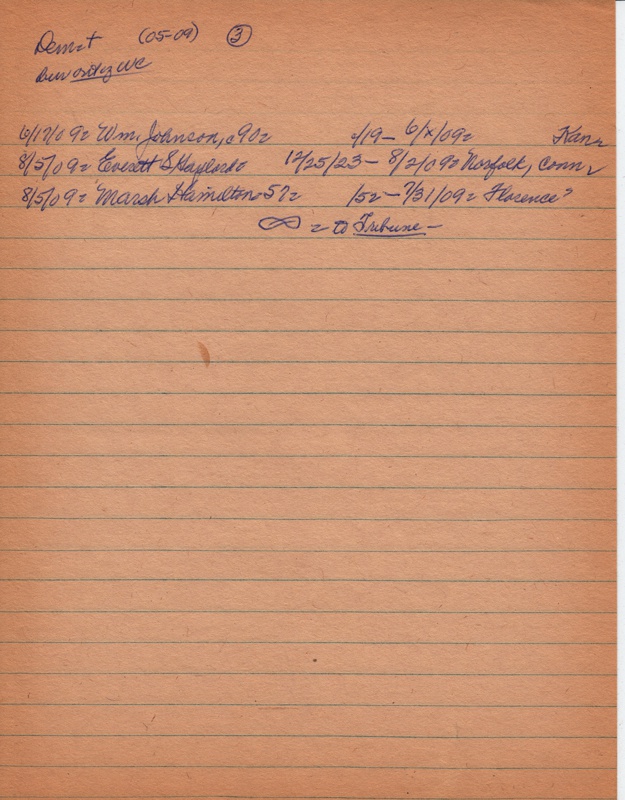 Dem=t (05-09) 3
6/17/09= Wm. Johnson, c90= c/19- 6/x/09= Kan=
8/5/09= Everett S. Gaylord= 12/25/23- 8/2/09= Norfolk, Conn=
8/5/09= Marsh Hamilton-57= /52-7/31/09= Florence?
= to Tribune-